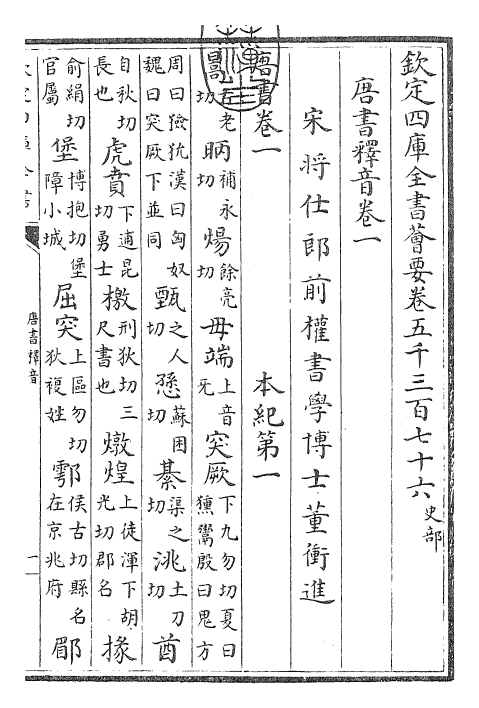 欽定四庫全書薈要卷五千三百七十六 史部
唐書釋音卷一
宋將仕郎前權書學博士董衝進
唐書卷一 本紀第一
暠古老切 昞補永切 煬餘亮切 毋端上音无 突厥下九勿切夏曰獯鬻殷曰鬼方
周曰獫狁漢曰匈奴魏曰突厥下並同 甄之人切 愻蘇困切 綦渠之切 洮土刀切 酋
自秋切長也 虎賁下逋昆切勇士 檄刑狄切三尺書也 燉煌上徒渾下胡光切郡名 掾
俞絹切官屬 堡博抱切堡障小城 屈突上區勿切狄複姓 鄠侯古切縣名在京兆府 郿
唐書釋音
一